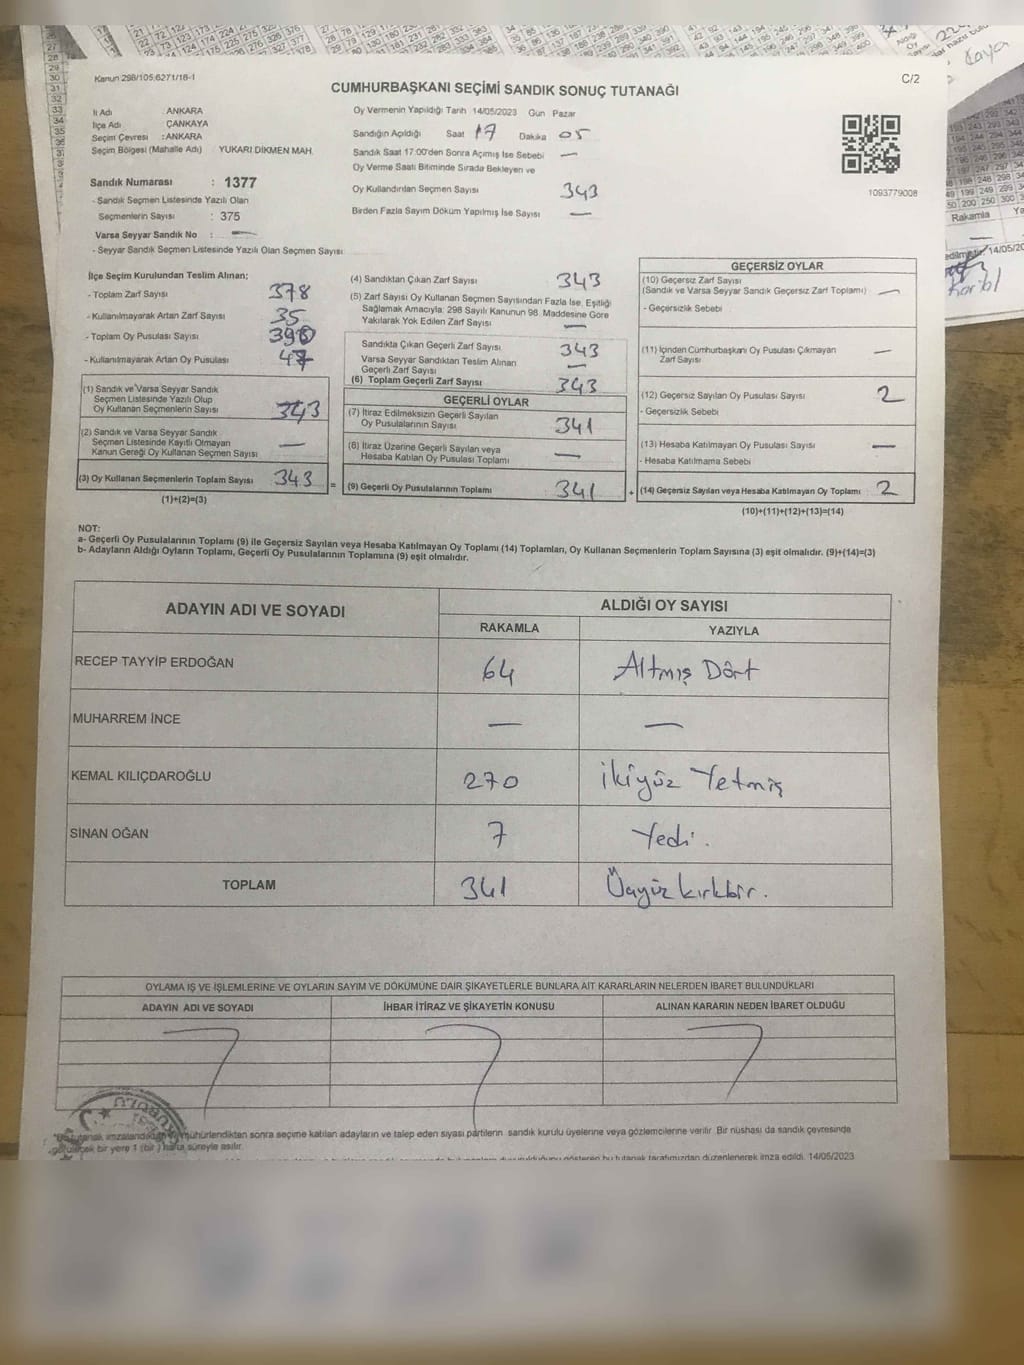 Kanun 298/105,6271/16-1
C/2
CUMHURBAŞKANI SEÇİMİ SANDIK SONUÇ TUTANAĞI
İl Adı ANKARA
İlçe Adı ÇANKAYA
Seçim Çevresi : ANKARA
Seçim Bölgesi (Mahalle Adı) YUKARI DİKMEN MAH.
Sandık Numarası : 1377
- Sandık Seçmen Listesinde Yazılı Olan
Seçmenlerin Sayısı : 375
Varsa Seyyar Sandık No : —
- Seyyar Sandık Seçmen Listesinde Yazılı Olan Seçmen Sayısı:
Oy Vermenin Yapıldığı Tarih 14/05/2023 Gün Pazar
Sandığın Açıldığı Saat 17 Dakika 05
Sandık Saat 17:00'den Sonra Açımış İse Sebebi —
Oy Verme Saati Bitiminde Sırada Bekleyen ve
Oy Kullandırılan Seçmen Sayısı 343
Birden Fazla Sayım Döküm Yapılmış İse Sayısı —
1093779008
İlçe Seçim Kurulundan Teslim Alınan;
- Toplam Zarf Sayısı 378
- Kullanılmayarak Artan Zarf Sayısı 35
- Toplam Oy Pusulası Sayısı 390
- Kullanılmayarak Artan Oy Pusulası 47
(1) Sandık ve Varsa Seyyar Sandık
Seçmen Listesinde Yazılı Olup
Oy Kullanan Seçmenlerin Sayısı 343
(2) Sandık ve Varsa Seyyar Sandık
Seçmen Listesinde Kayıtlı Olmayan
Kanun Gereği Oy Kullanan Seçmen Sayısı —
(3) Oy Kullanan Seçmenlerin Toplam Sayısı 343
(1)+(2)=(3)
=
(4) Sandıktan Çıkan Zarf Sayısı 343
(5) Zarf Sayısı Oy Kullanan Seçmen Sayısından Fazla İse, Eşitliği
Sağlamak Amacıyla; 298 Sayılı Kanunun 98. Maddesine Göre
Yakılarak Yok Edilen Zarf Sayısı —
Sandıkta Çıkan Geçerli Zarf Sayısı 343
Varsa Seyyar Sandıktan Teslim Alınan
Geçerli Zarf Sayısı —
(6) Toplam Geçerli Zarf Sayısı 343
GEÇERLİ OYLAR
(7) İtiraz Edilmeksizin Geçerli Sayılan
Oy Pusulalarının Sayısı 341
(8) İtiraz Üzerine Geçerli Sayılan veya
Hesaba Katılan Oy Pusulası Toplamı —
(9) Geçerli Oy Pusulalarının Toplamı 341
+
GEÇERSİZ OYLAR
(10) Geçersiz Zarf Sayısı
(Sandık ve Varsa Seyyar Sandık Geçersiz Zarf Toplamı) —
- Geçersizlik Sebebi
(11) İçinden Cumhurbaşkanı Oy Pusulası Çıkmayan
Zarf Sayısı —
(12) Geçersiz Sayılan Oy Pusulası Sayısı 2
- Geçersizlik Sebebi
(13) Hesaba Katılmayan Oy Pusulası Sayısı —
- Hesaba Katılmama Sebebi
(14) Geçersiz Sayılan veya Hesaba Katılmayan Oy Toplamı 2
(10)+(11)+(12)+(13)=(14)
NOT:
a- Geçerli Oy Pusulalarının Toplamı (9) ile Geçersiz Sayılan veya Hesaba Katılmayan Oy Toplamı (14) Toplamları, Oy Kullanan Seçmenlerin Toplam Sayısına (3) eşit olmalıdır. (9)+(14)=(3)
b- Adayların Aldığı Oyların Toplamı, Geçerli Oy Pusulalarının Toplamına (9) eşit olmalıdır.
ADAYIN ADI VE SOYADI
ALDIĞI OY SAYISI
RAKAMLA YAZIYLA
RECEP TAYYİP ERDOĞAN 64 Altmış Dört
MUHARREM İNCE — —
KEMAL KILIÇDAROĞLU 270 İkiyüz Yetmiş
SİNAN OĞAN 7 Yedi.
TOPLAM 341 Üçyüzkırkbir.
OYLAMA İŞ VE İŞLEMLERİNE VE OYLARIN SAYIM VE DÖKÜMÜNE DAİR ŞİKAYETLERLE BUNLARA AİT KARARLARIN NELERDEN İBARET BULUNDUKLARI
ADAYIN ADI VE SOYADI İHBAR İTİRAZ VE ŞİKAYETİN KONUSU ALINAN KARARIN NEDEN İBARET OLDUĞU
mühürlendikten sonra seçime katılan adayların ve talep eden siyasi partilerin sandık kurulu üyelerine veya gözlemcilerine verilir. Bir nüshası da sandık çevresinde
bir yere 1 (bir) hafta süreyle asılır.
bu tutanak tarafımızdan düzenlenerek imza edildi. 14/05/2023